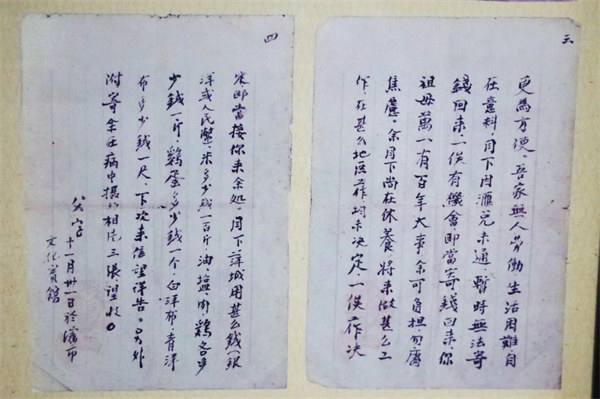 三
更為方便。吾家無人勞働生活困難自
在意料,目下因滙兌未通,暫時無法寄
錢回來,一俟有機會,即當寄錢回來,你
祖母萬一有百年大事余可負担,勿庸
焦慮。余目下尚在休養,將來做甚么工
作,在甚么地區工作均未決定,一俟工作決
四
定即當接你來余処。目下萍城用甚么錢(銀
洋或人民幣),米多少錢一百斤,油、鹽、肉、鷄各多
少錢一斤,鷄蛋多少錢一个,白洋布、青洋
布多少錢一尺,下次來信望詳告。另外
附寄余在病中摄的相片三張望收。
父字
十一月卅一日於瀋市
文化賓館